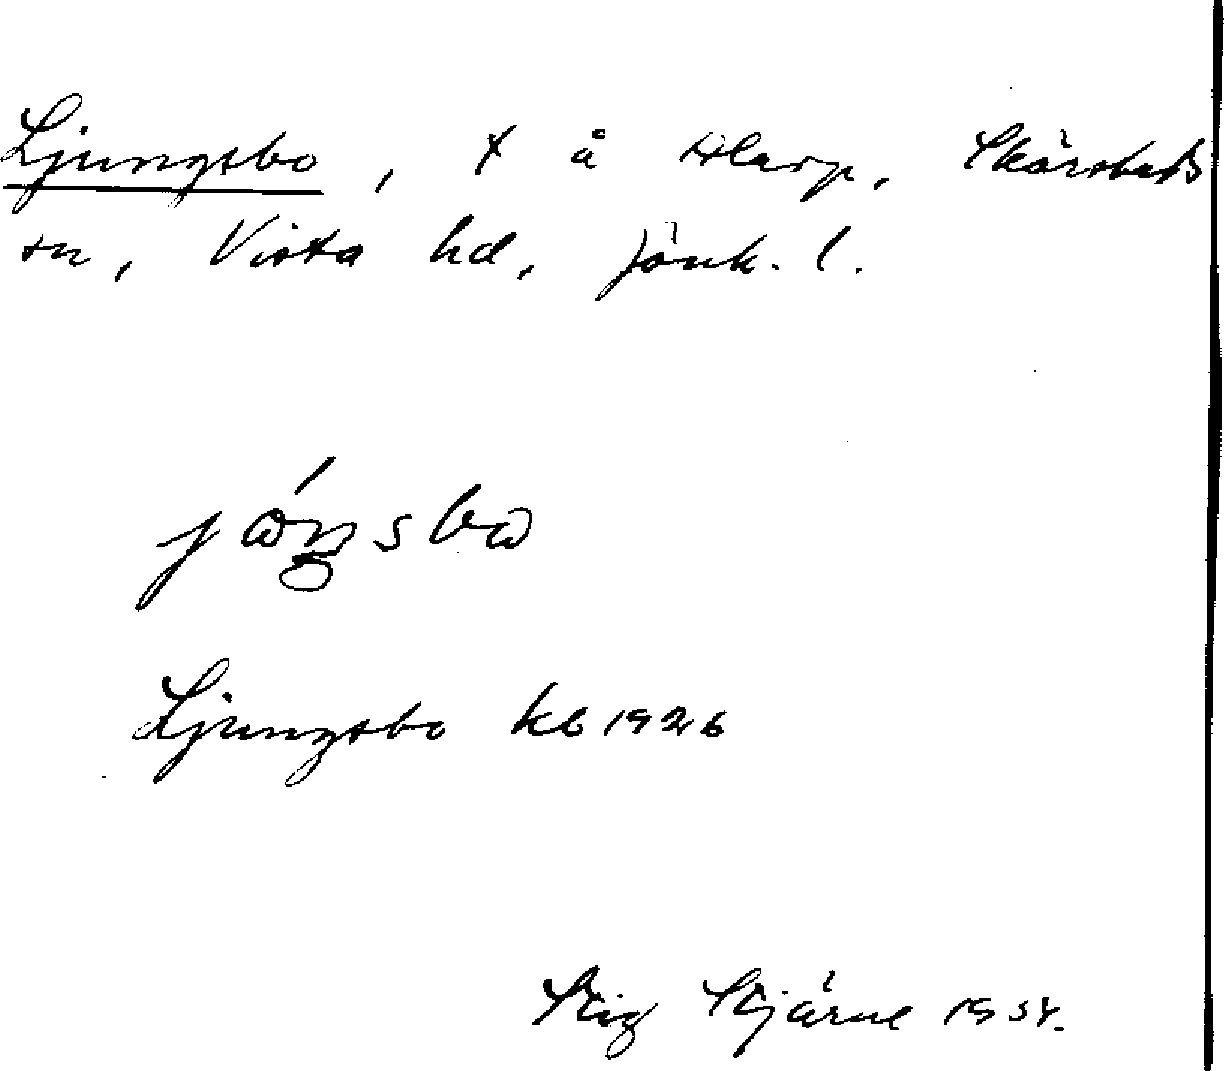 Ljungsbo, t å Harp, Skärstads
sn, Vista hd, Jönk. l.
Ljungsbo kb 1926
Stig Stjärne 1934.